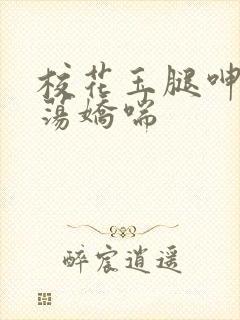 校花玉腿呻
荡嬌喘
醉宸逍遥